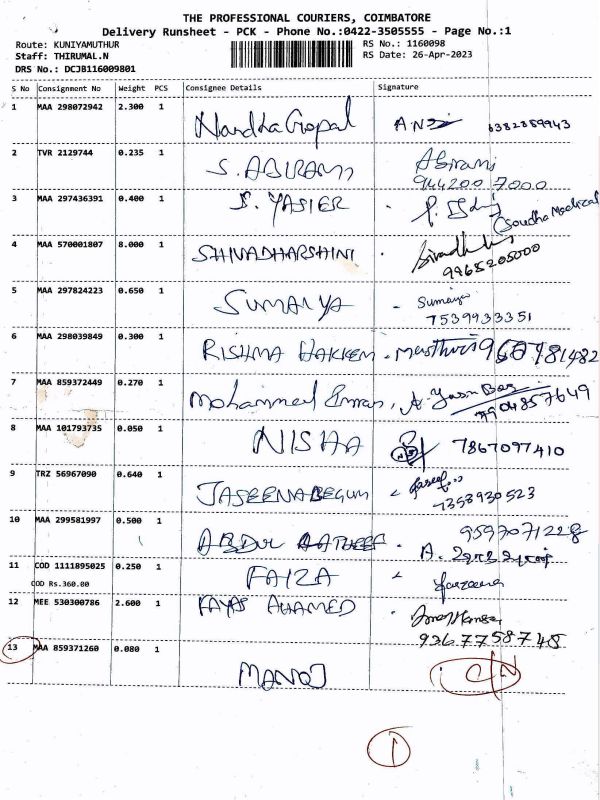 THE PROFESSIONAL COURIERS, COIMBATORE
Delivery Runsheet - PCK - Phone No.:0422-3505555 - Page No.:1
Route: KUNIYAMUTHUR
RS No.: 1160098
Staff: THIRUMAL.N
RS Date: 26-Apr-2023
DRS No.: DCJB116009801
S No Consignment No Weight PCS Consignee Details Signature
1 MAA 298072942 2.300 1 Nandha Gopal 6382889943
2 TVR 2129744 0.235 1 S. ABIRAMI Abirami
944200 7000
3 MAA 297436391 0.400 1 S. YASIER
4 MAA 570001807 8.000 1 SHIVADHARSHINI
9965205000
5 MAA 297824223 0.650 1 SUMAIYA Sumaiya
7539933351
6 MAA 298039849 0.300 1 RISHMA HAKKEM
7 MAA 859372449 0.270 1 Mohammed
7904857649
8 MAA 101793735 0.050 1 NISHA 7867097410
9 TRZ 56967090 0.640 1 JASEENABEGUM
7358930523
10 MAA 299581997 0.500 1 ABDUL 9597071228
11 COD 1111895025 0.250 1 FAIZA
COD Rs.360.00
12 MEE 530300786 2.600 1 FAYAS AHAMED
9367758748
13 MAA 859371260 0.080 1 MANOJ
1